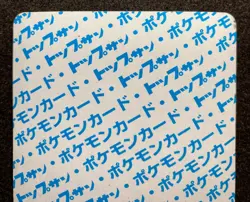 トップサン・
ポケモンカード・トップサン・
トップサン・ポケモンカード・
ポケモンカード・トップサン・
トップサン・ポケモンカード・
ポケモンカード・トップサン・
トップサン・ポケモンカード
ポケモンカード